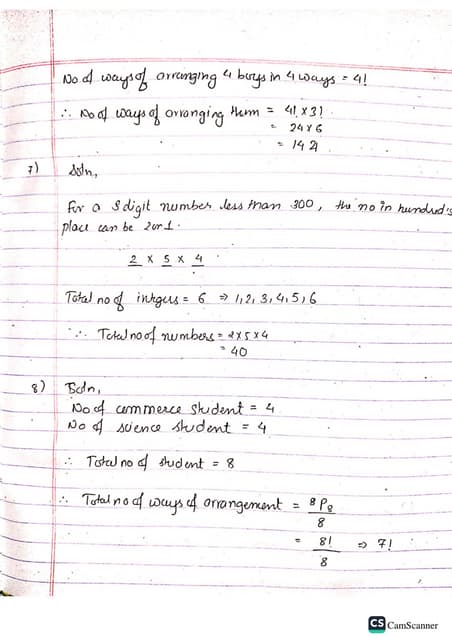 No of ways of arranging 4 boys in 4 ways = 4!
∴ No of ways of arranging them = 4! × 3!
= 24 × 6
= 144
7) Soln,
For a 3 digit number less than 300, the no in hundred's
place can be 2 or 1.
2 × 5 × 4
Total no of integers = 6 ⇒ 1, 2, 3, 4, 5, 6
∴ Total no of numbers = 2×5×4
= 40
8) Soln,
No of commerce student = 4
No of science student = 4
∴ Total no of student = 8
∴ Total no of ways of arrangement = ⁸P₈
8
= 8! ⇒ 7!
8
CS CamScanner